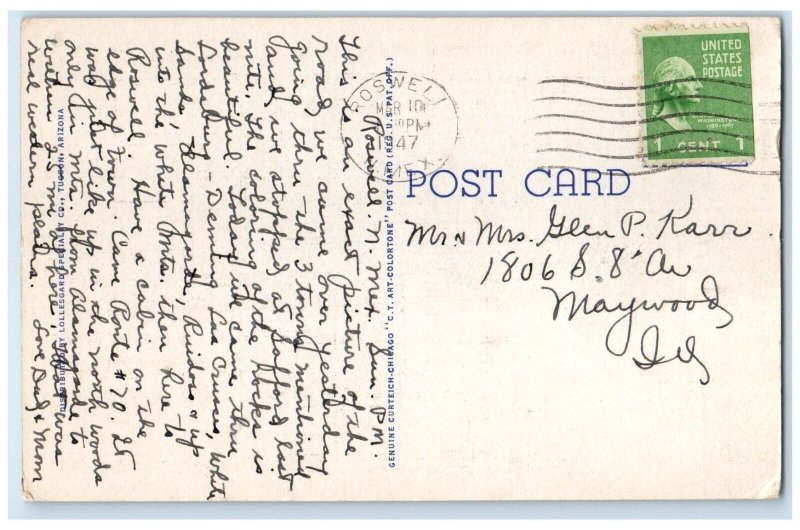 Roswell. N. Mex. Sun. P.M.
This is an exact picture of the
road we came over yesterday
going thru the 3 towns mentioned
and we stopped at Safford last
nite. The coloring of the Rocks is
beautiful. Today we came thru
Lordsburg - Deming Las Cruces, White
Sands, Alamagorda, Ruidoso & up
into the white Mts. then here to
Roswell. Have a cabin on the
edge of town. Came Route #70. It
was just like up in the north woods
only in Mts. from Alamagorda to
within 25 mi of here, that was
real western plains.
Love Dad & Mom
DISTRIBUTED BY LOLLESGARD SPECIALTY CO., TUCSON, ARIZONA
GENUINE CURTEICH-CHICAGO "C.T. ART-COLORTONE" POST CARD (REG. U.S. PAT. OFF.)
ROSWELL
MAR 10
PM
1947
N. MEX.
UNITED
STATES
POSTAGE
WASHINGTON
1 CENT 1
POST CARD
Mr & Mrs. Glen P. Karr.
1806 S. 8" Av
Maywood
Ill